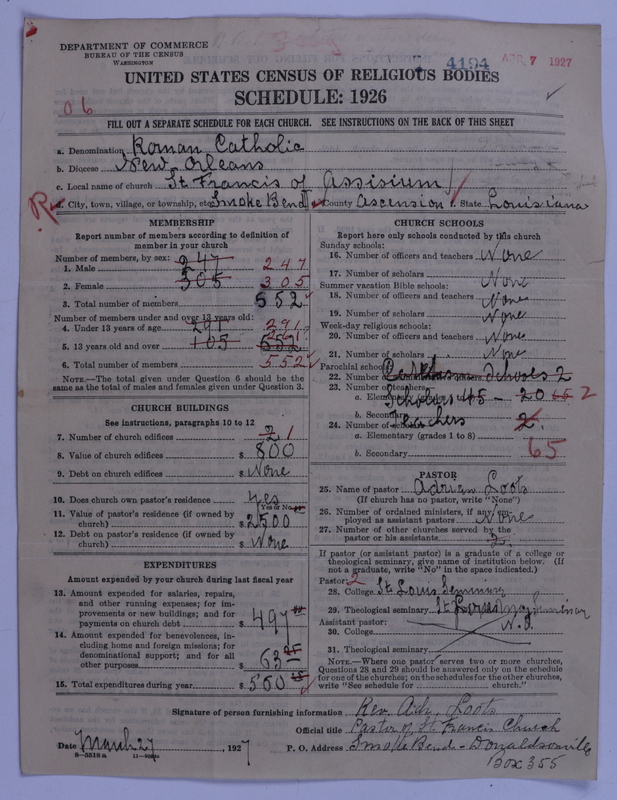 DEPARTMENT OF COMMERCE
BUREAU OF THE CENSUS
WASHINGTON
4194 APR 7 1927
UNITED STATES CENSUS OF RELIGIOUS BODIES
SCHEDULE: 1926
06
FILL OUT A SEPARATE SCHEDULE FOR EACH CHURCH. SEE INSTRUCTIONS ON THE BACK OF THIS SHEET
a. Denomination Roman Catholic
b. Diocese New Orleans
c. Local name of church St. Francis of Assisium
R d. City, town, village, or township, etc. Smoke Bend County Ascension State Louisiana
MEMBERSHIP
Report number of members according to definition of
member in your church
Number of members, by sex:
1. Male 247 247
2. Female 305 305
3. Total number of members 552
Number of members under and over 13 years old:
4. Under 13 years of age 291 291
5. 13 years old and over 105 552 261
6. Total number of members 552
NOTE.—The total given under Question 6 should be
same as the total of males and females given under Question 3.
CHURCH BUILDINGS
See instructions, paragraphs 10 to 12
7. Number of church edifices 2 1
8. Value of church edifices $ 800
9. Debt on church edifices $ None
10. Does church own pastor's residence Yes
(Yes or No)
11. Value of pastor's residence (if owned by
church) $ 2500
12. Debt on pastor's residence (if owned by
church) $ None
EXPENDITURES
Amount expended by your church during last fiscal year
13. Amount expended for salaries, repairs,
and other running expenses; for im-
provements or new buildings; and for
payments on church debt $ 497
14. Amount expended for benevolences, in-
cluding home and foreign missions; for
denominational support; and for all
other purposes $ 63 25
15. Total expenditures during year $ 560
CHURCH SCHOOLS
Report here only schools conducted by this church
Sunday schools:
16. Number of officers and teachers None
17. Number of scholars None
Summer vacation Bible schools:
18. Number of officers and teachers None
19. Number of scholars None
Week-day religious schools:
20. Number of officers and teachers None
21. Number of scholars None
Parochial schools:
22. Number Schools 2
23. Number of teachers:
a. Elementary Scholars 45 - 20 65 2
b. Secondary Teachers 2
24. Number of scholars
a. Elementary (grades 1 to 8) 65
b. Secondary
PASTOR
25. Name of pastor Adrian Loots
(If church has no pastor, write "None")
26. Number of ordained ministers, if any, em-
ployed as assistant pastors None
27. Number of other churches served by the
pastor or his assistants 2
If pastor (or assistant pastor) is a graduate of a college or
theological seminary, give name of institution below. (If
not a graduate, write "No" in the space indicated.)
Pastor: 2
28. College St Louis Seminary
29. Theological seminary St Louis Seminary
Assistant pastor: N.O.
30. College
31. Theological seminary
NOTE.—Where one pastor serves two or more churches,
Questions 28 and 29 should be answered only on the schedule
for one of the churches; on the schedules for the other churches,
write "See schedule for church."
Signature of person furnishing information Rev. Adr. Loots
Official title Pastor of St Francis Church
Date March 27, 1927 P. O. Address Smoke Bend - Donaldsonville
Box 355
8—5318 a